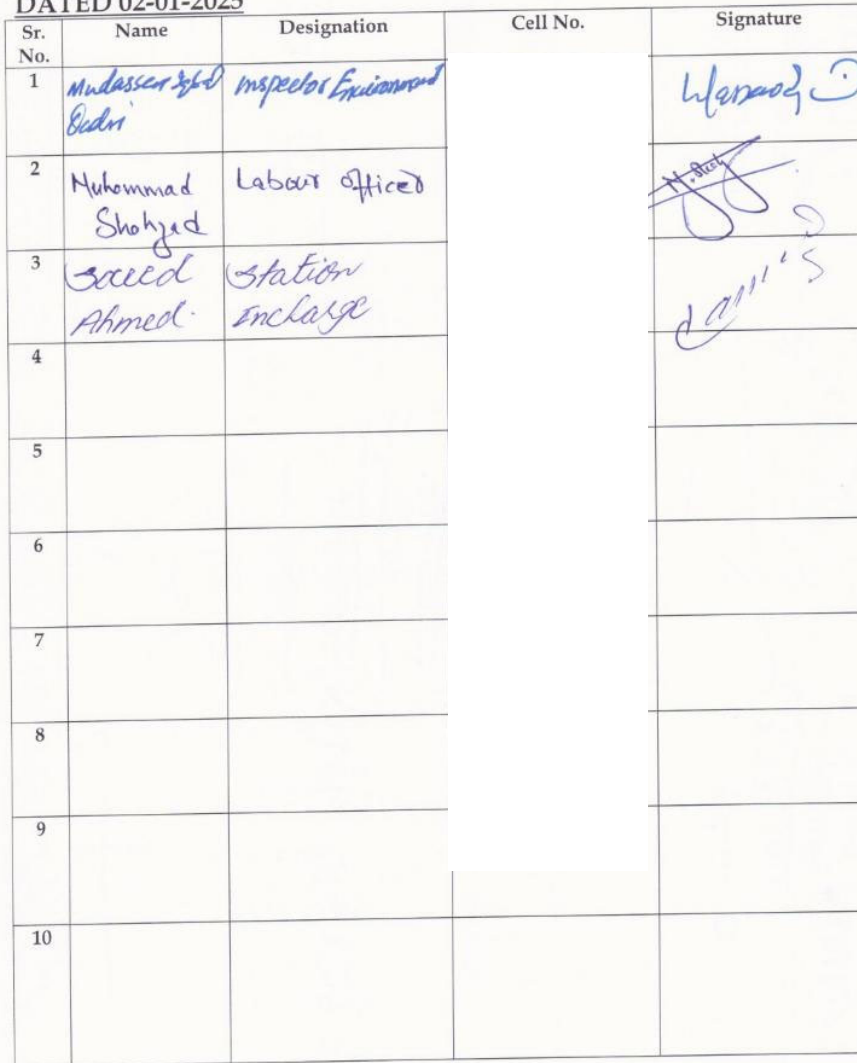 DATED 02-01-2025
Sr. No. Name Designation Cell No. Signature
1 Mudasser Iqbal Qadri Inspector Environment
2 Muhammad Shahzad Labour Officer
3 Saeed Ahmed. Station Incharge
4
5
6
7
8
9
10